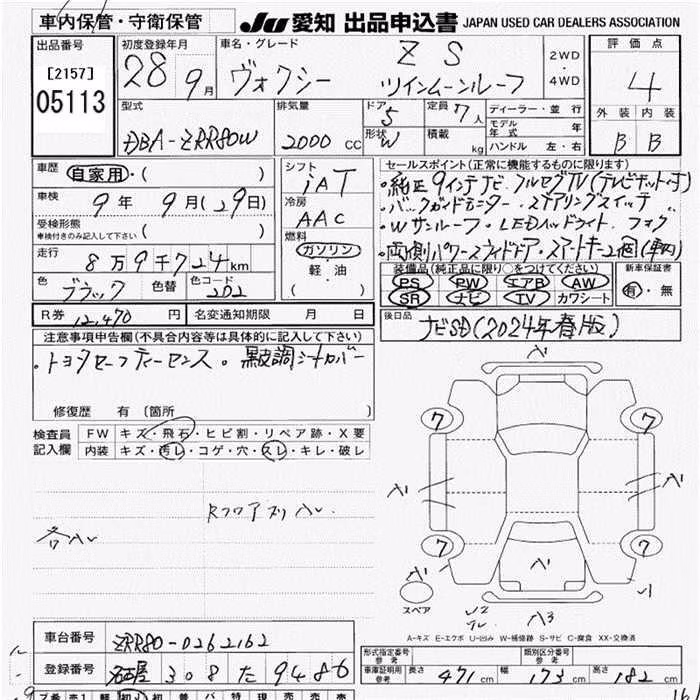 車内保管・守衛保管
JU 愛知 出品申込書 JAPAN USED CAR DEALERS ASSOCIATION
出品番号
[2157]
05113
初度登録年月
28 9月
車名・グレード
ヴォクシー
ZS
ツインムーンルーフ
2WD
・
4WD
評価点
4
外装 内装
B B
型式
DBA-ZRR80W
排気量
2000 CC
ドア 5
形状 W
定員 7人
積載 kg
ディーラー・並行
モデル年式 年
ハンドル 左・右
車歴 自家用・( )
車検 9年 9月(29日)
受検形態
車検付きのみ記入して下さい ( )
走行 8万9千724km
色 ブラック 色替 色コード 202
シフト
iAT
冷房
AAC
燃料
ガソリン
・
軽・油
( )
セールスポイント(正常に機能するものに限ります)
・純正9インチナビ フルセグTV(テレビキット付)
・バックガイドモニター・ステアリングスイッチ
・Wサンルーフ・LEDヘッドライト フォグ
・両側パワースライドドア・スマートキー2個(車内)
装備品(純正品に限り○をつけてください)
PS PW エアB AW
SR ナビ TV カワシート
新車保証書
有・無
R券 12,470円 名変通知期限 月 日
後日品
ナビSD(2024年春版)
注意事項申告欄(不具合内容等は具体的に記入して下さい)
・トヨタセーフティーセンス。黒皮調シートカバー
修復歴 有〔箇所 〕
検査員
記入欄
FW キズ・飛石・ヒビ割・リペア跡・X要
内装 キズ・汚レ・コゲ・穴・スレ・キレ・破レ
Rフロアスリハレ
各ハレ
A1
7 7
A1 A1
7 7
A1 A1
スペア
U2
A3
A-キズ E-エクボ U-凹み W-補修跡 S-サビ C-腐食 XX-交換済
車台番号 ZRR80-0262162
登録番号 名古屋 308 た 9486
形式指定番号
参考
類別区分番号
参考
車庫証明用
参考
長さ 471cm 幅 173cm 高さ 182cm